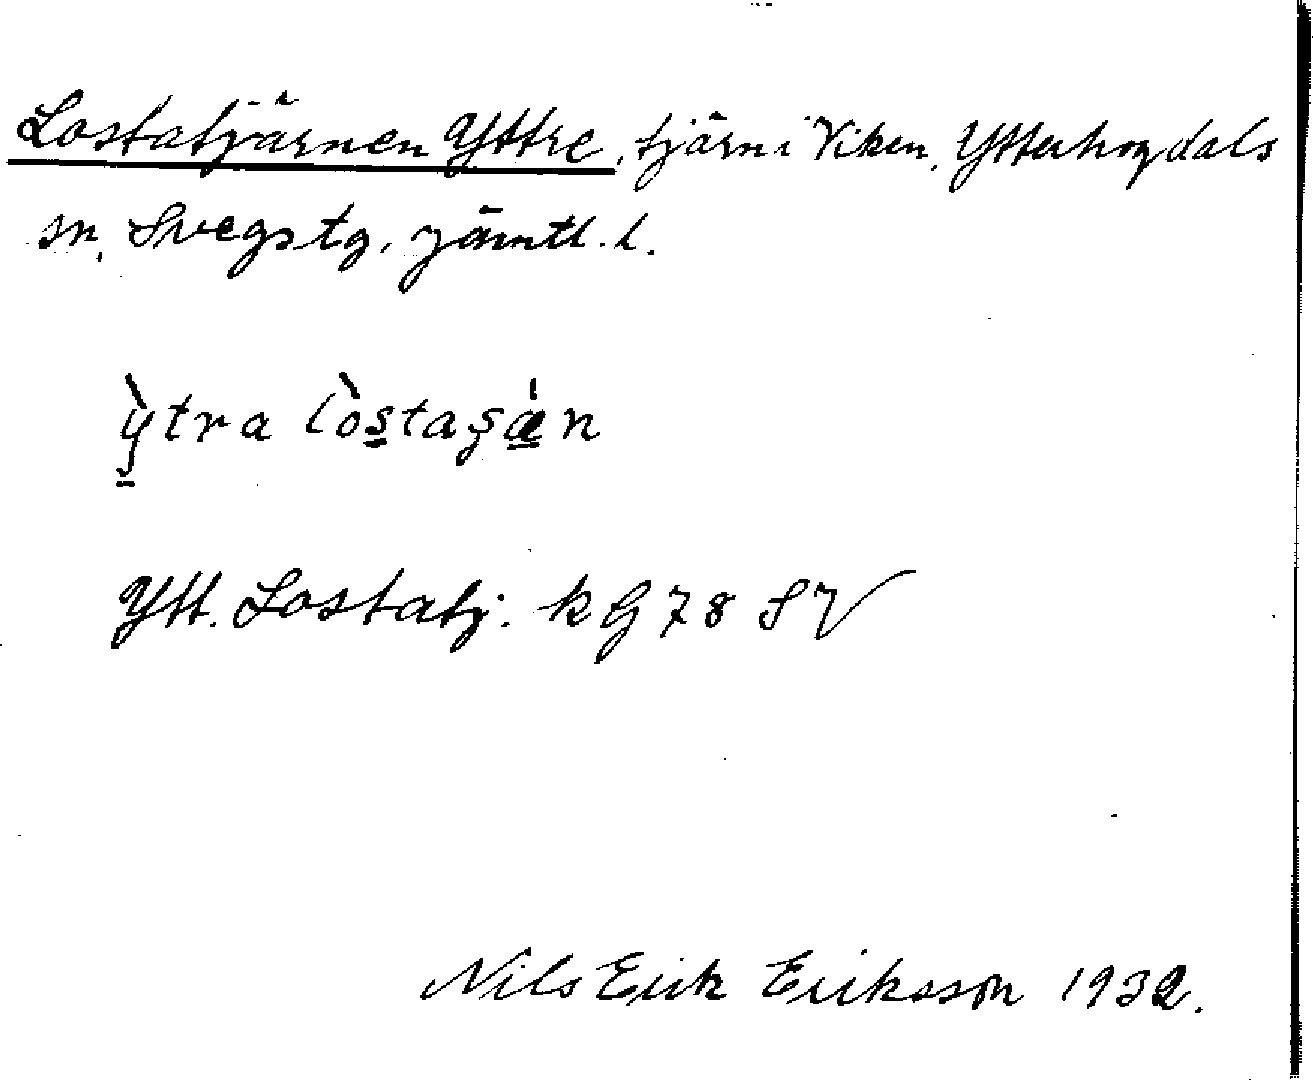 Lostatjärnen Yttre, tjärn i Viken, Ytterhogdals
sn, Svegs tg, Jämtl. l.
ỳtra lòstaşæ̀n
Ytt. Lostatj. kG 78 SV
Nils Erik Eriksson 1932.